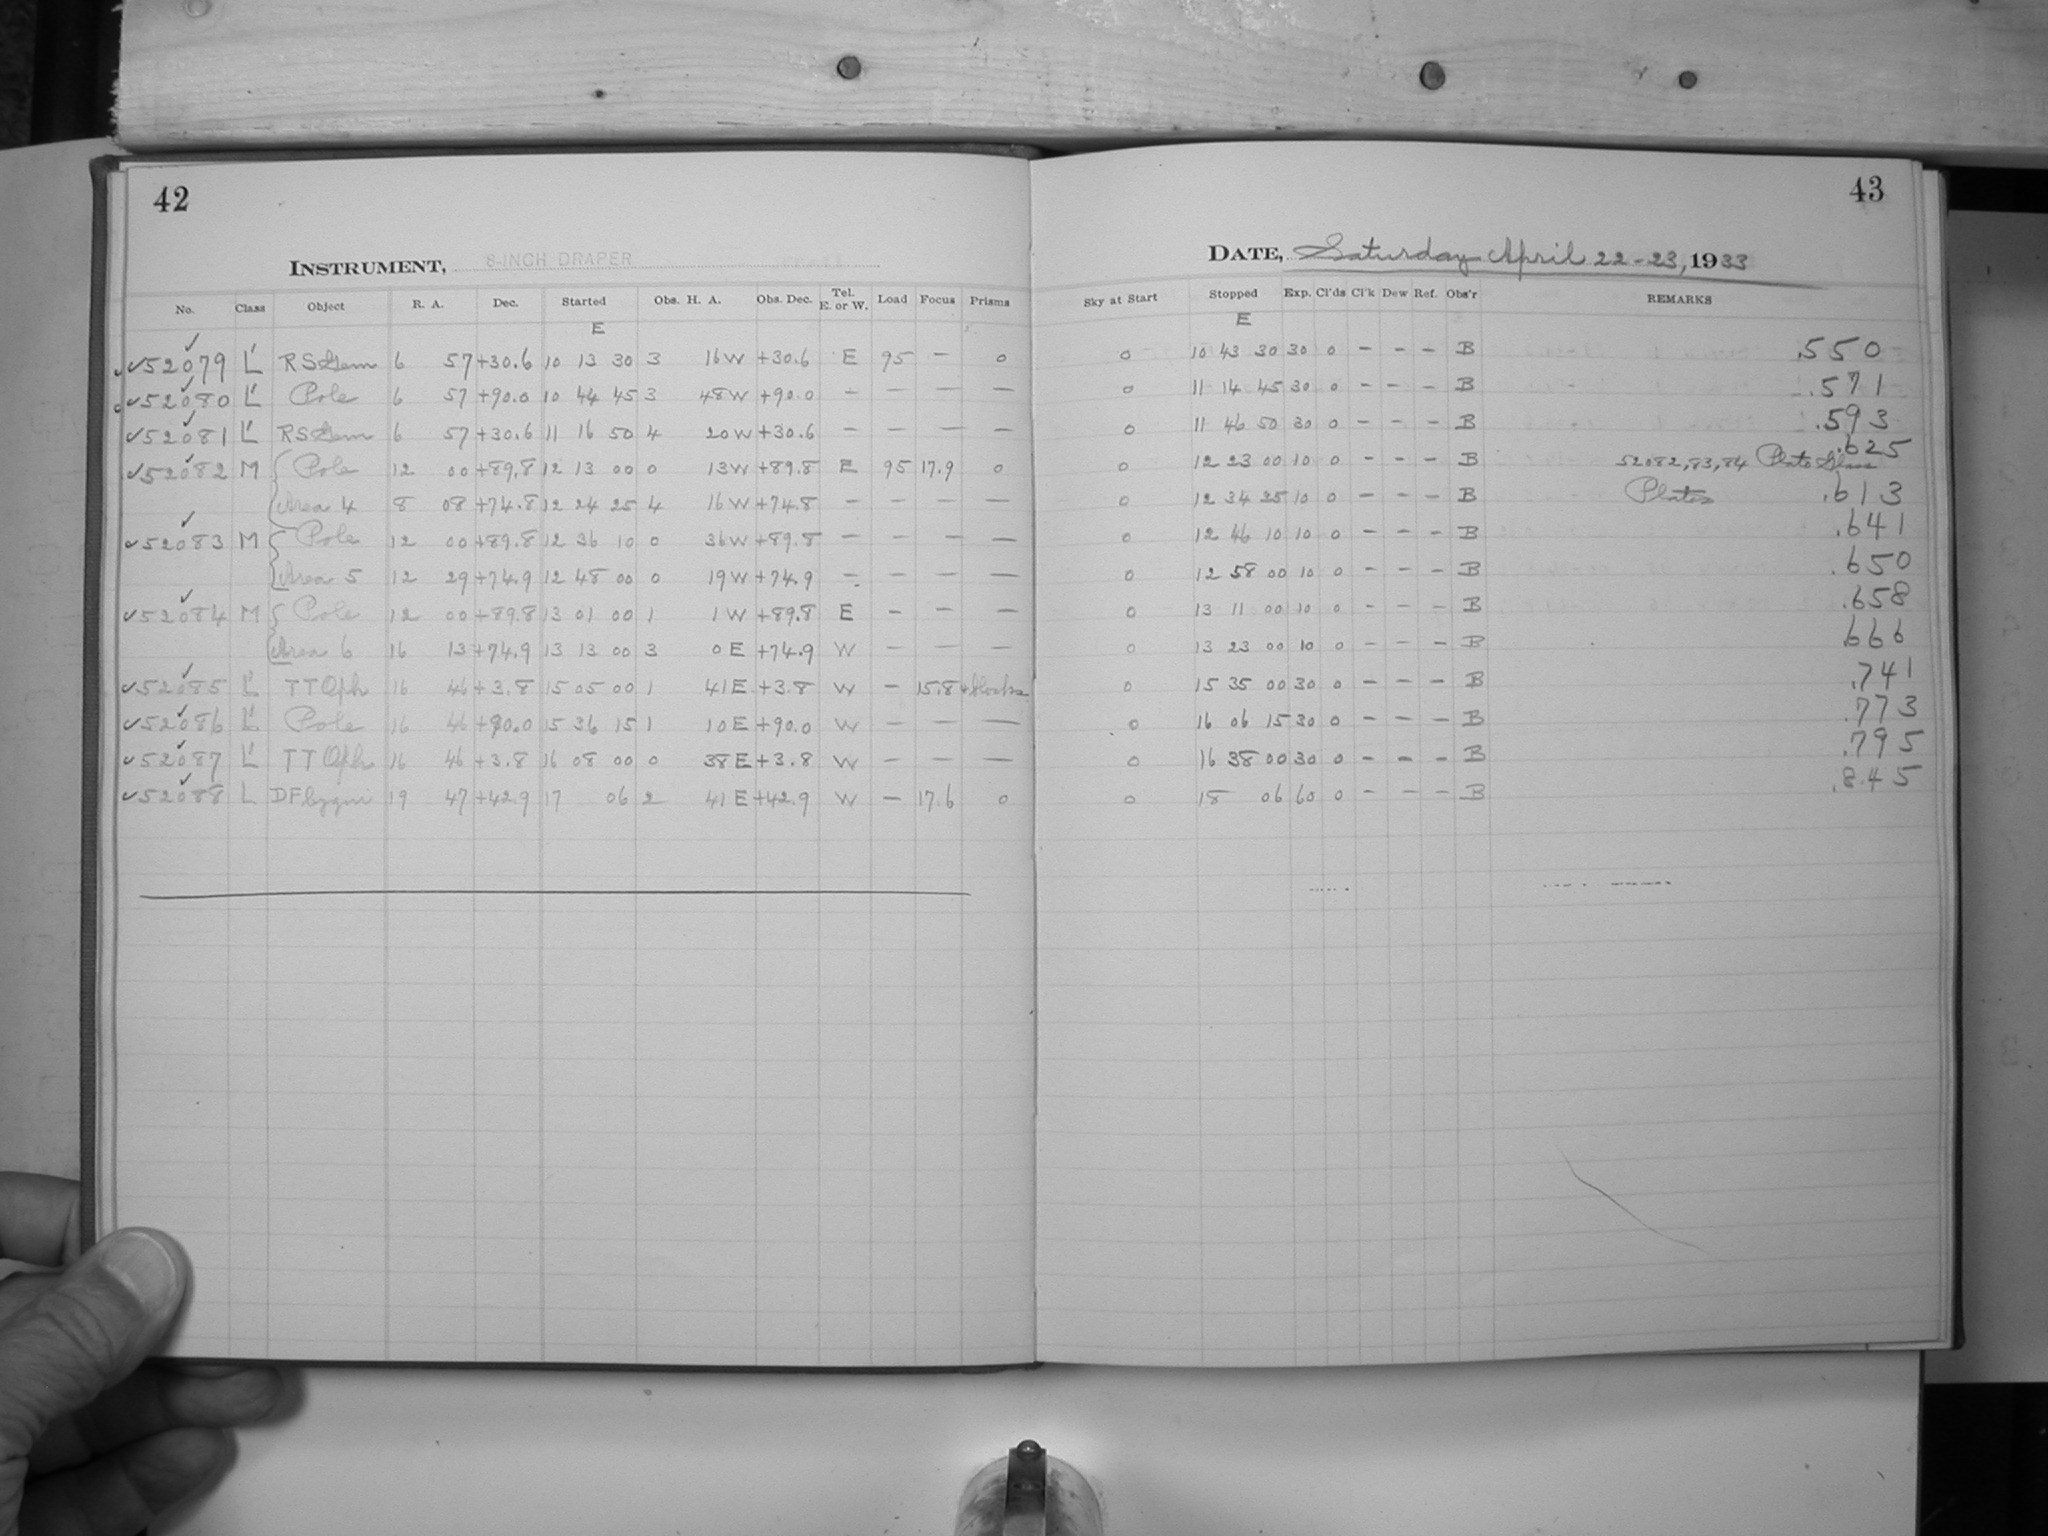 42
INSTRUMENT, 8-INCH DRAPER
No. Class Object R. A. Dec. Started Obs. H. A. Obs. Dec. Tel. E. or W. Load Focus Prisms
E
52079 L' RS Gem 6 57 +30.6 10 13 30 3 16 W +30.6 E 95 — 0
52080 L' Pole 6 57 +90.0 10 44 45 3 48 W +90.0 — — — —
52081 L' RS Gem 6 57 +30.6 11 16 50 4 20 W +30.6 — — — —
52082 M Pole 12 00 +89.8 12 13 00 0 13 W +89.8 E 95 17.9 0
Area 4 8 08 +74.8 12 24 25 4 16 W +74.8 — — — —
52083 M Pole 12 00 +89.8 12 36 10 0 36 W +89.8 — — — —
Area 5 12 29 +74.9 12 48 00 0 19 W +74.9 — — — —
52084 M Pole 12 00 +89.8 13 01 00 1 1 W +89.8 E — — —
Area 6 16 13 +74.9 13 13 00 3 0 E +74.9 W — — —
52085 L' TT Oph 16 46 +3.8 15 05 00 1 41 E +3.8 W — 15.8
52086 L' Pole 16 46 +90.0 15 36 15 1 10 E +90.0 W — — —
52087 L' TT Oph 16 46 +3.8 16 08 00 0 38 E +3.8 W — — —
52088 L DF Cygni 19 47 +42.9 17 06 2 41 E +42.9 W — 17.6 0
43
DATE, Saturday April 22-23, 1933
Sky at Start Stopped Exp. Cl'ds Cl'k Dew Ref. Obs'r REMARKS
E
0 10 43 30 30 0 - - - B .550
0 11 14 45 30 0 - - - B .571
0 11 46 50 30 0 - - - B .593
0 12 23 00 10 0 - - - B 52082,83,84 Plate Glass .625
0 12 34 25 10 0 - - - B Plates .613
0 12 46 10 10 0 - - - B .641
0 12 58 00 10 0 - - - B .650
0 13 11 00 10 0 - - - B .658
0 13 23 00 10 0 - - - B .666
0 15 35 00 30 0 - - - B .741
0 16 06 15 30 0 - - - B .773
0 16 38 00 30 0 - - - B .795
0 18 06 60 0 - - - B .845